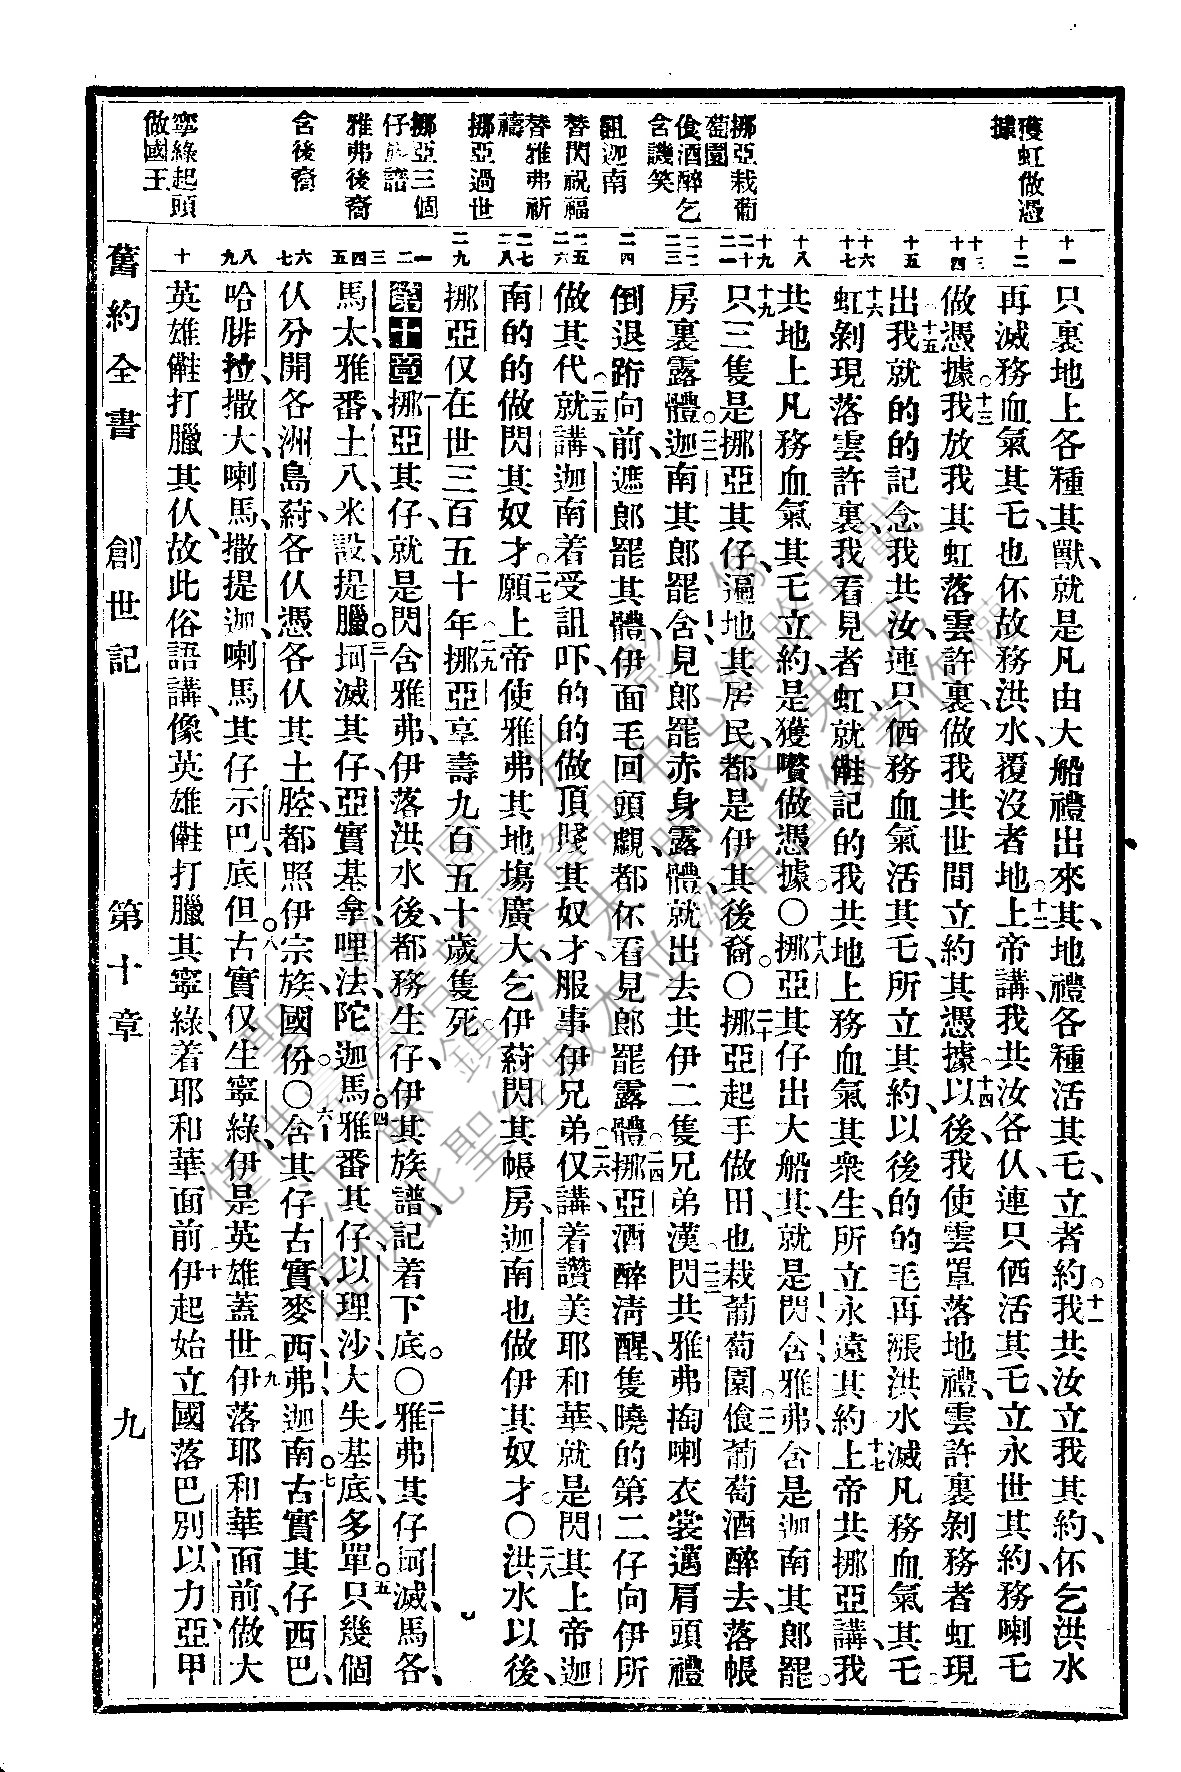 獲虹做憑
據
挪亞栽葡
萄園
食酒醉乞
含譏笑
詛迦南
替閃祝福
替雅弗祈
禱
挪亞過世
挪亞三個
仔族譜
雅弗後裔
含後裔
寧綠起頭
做國王
十一
只裏地上各種其獸就是凡由大船禮出來其地禮各種活其乇立者約我共汝立我其約伓乞洪水
十二
再滅務血氣其乇也伓故務洪水覆沒者地上帝講我共汝各仈連只価活其乇立永世其約務喇乇
十三 十四
做憑據我放我其虹落雲許裏做我共世間立約其憑據以後我使雲罩落地禮雲許裏剝務者虹現
十五
出我就的的記念我共汝連只価務血氣活其乇所立其約以後的的毛再漲洪水滅凡務血氣其乇
十六 十七
虹剝現落雲許裏我看見者虹就㒕記的我共地上務血氣其衆生所立永遠其約上帝共挪亞講我
十八
共地上凡務血氣其乇立約是獲囋做憑據〇挪亞其仔出大船其就是閃含雅弗含是迦南其郎罷
十九 二十 二一
只三隻是挪亞其仔遍地其居民都是伊其後裔〇挪亞起手做田也栽葡萄園食葡萄酒醉去落帳
二二 二三
房裏露體迦南其郎罷含見郎罷赤身露體就出去共伊二隻兄弟漢閃共雅弗掏喇衣裳邁肩頭禮
二四
倒退跔向前遮郎罷其體伊面毛回頭覷都伓看見郎罷露體挪亞酒醉淸醒隻曉的第二仔向伊所
二五 二六
做其代就講迦南着受詛吓的的做頂賤其奴才服事伊兄弟仅講着讚美耶和華就是閃其上帝迦
二七 二八
南的的做閃其奴才願上帝使雅弗其地塲廣大乞伊葤閃其帳房迦南也做伊其奴才〇洪水以後
二九
挪亞仅在世三百五十年挪亞享壽九百五十歲隻死
一 二
第十章挪亞其仔就是閃含雅弗伊落洪水後都務生仔伊其族譜記着下底〇雅弗其仔坷滅馬各
三 四 五
馬太雅番土八米設提臘坷滅其仔亞實基拿哩法陀迦馬雅番其仔以理沙大失基底多單只幾個
六 七
仈分開各洲島葤各仈憑各仈其土腔都照伊宗族國份〇含其仔古實麥西弗迦南古實其仔西巴
八 九
哈腓拉撒大喇馬撒提迦喇馬其仔示巴底但古實仅生寧綠伊是英雄蓋世伊落耶和華面前做大
十
英雄㒕打臘其仈故此俗語講像英雄㒕打臘其寧綠着耶和華面前伊起始立國落巴別以力亞甲
舊約全書 創世記 第十章 九